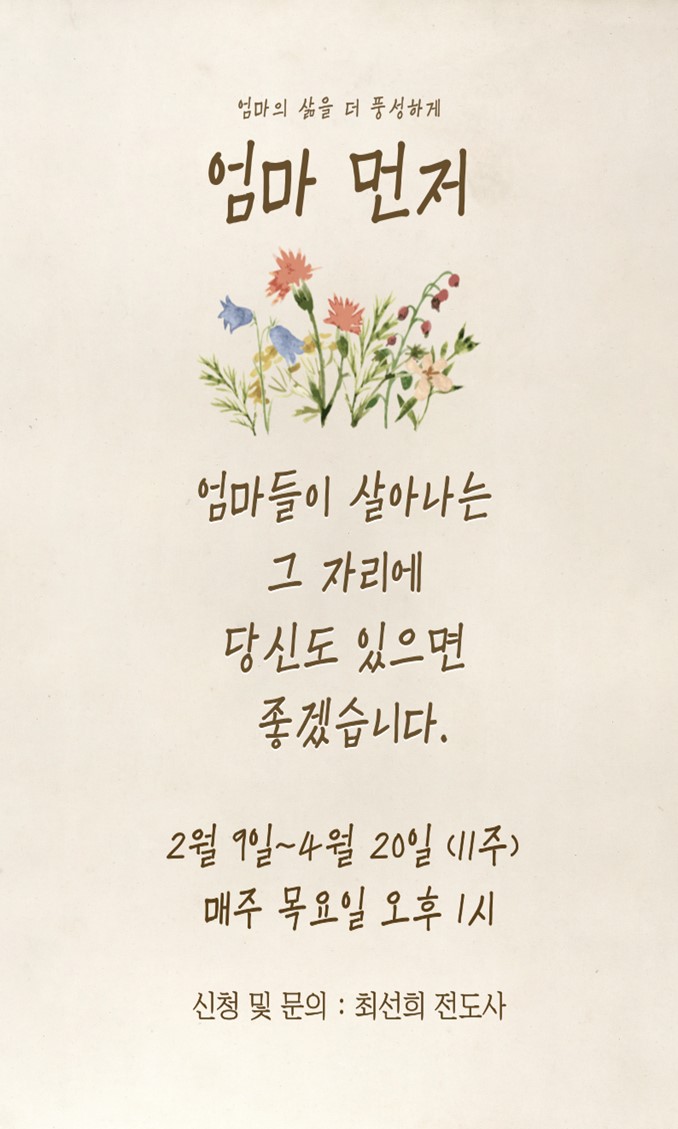 엄마의 삶을 더 풍성하게
엄마 먼저
엄마들이 살아나는
그 자리에
당신도 있으면
좋겠습니다.
2월 9일~4월 20일 (11주)
매주 목요일 오후 1시
신청 및 문의 : 최선희 전도사